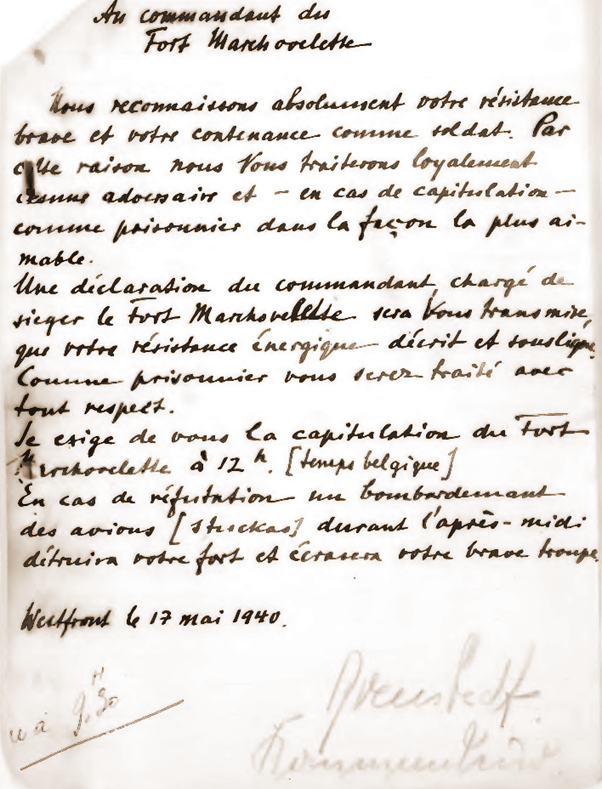 Au commandant du
Fort Marchovelette
Nous reconnaissons absolument votre résistance
brave et votre contenance comme soldat. Par
cette raison nous Vous traiterons loyalement
comme adversaire et – en cas de capitulation –
comme prisonnier dans la façon la plus ai-
mable.
Une déclaration du commandant, chargé de
sieger le Fort Marchovelette sera Vous transmise,
que votre résistance énergique décrit et souslique.
Comme prisonnier vous serez traité avec
tout respect.
Je exige de vous la capitulation du Fort
Marchovelette à 12 h. [temps belgique]
En cas de réfutation un bombardemant
des avions [stuckas] durant l'après-midi
détruira votre fort et écrasera votre brave troupe.
Westfront le 17 mai 1940.
à 9.H30